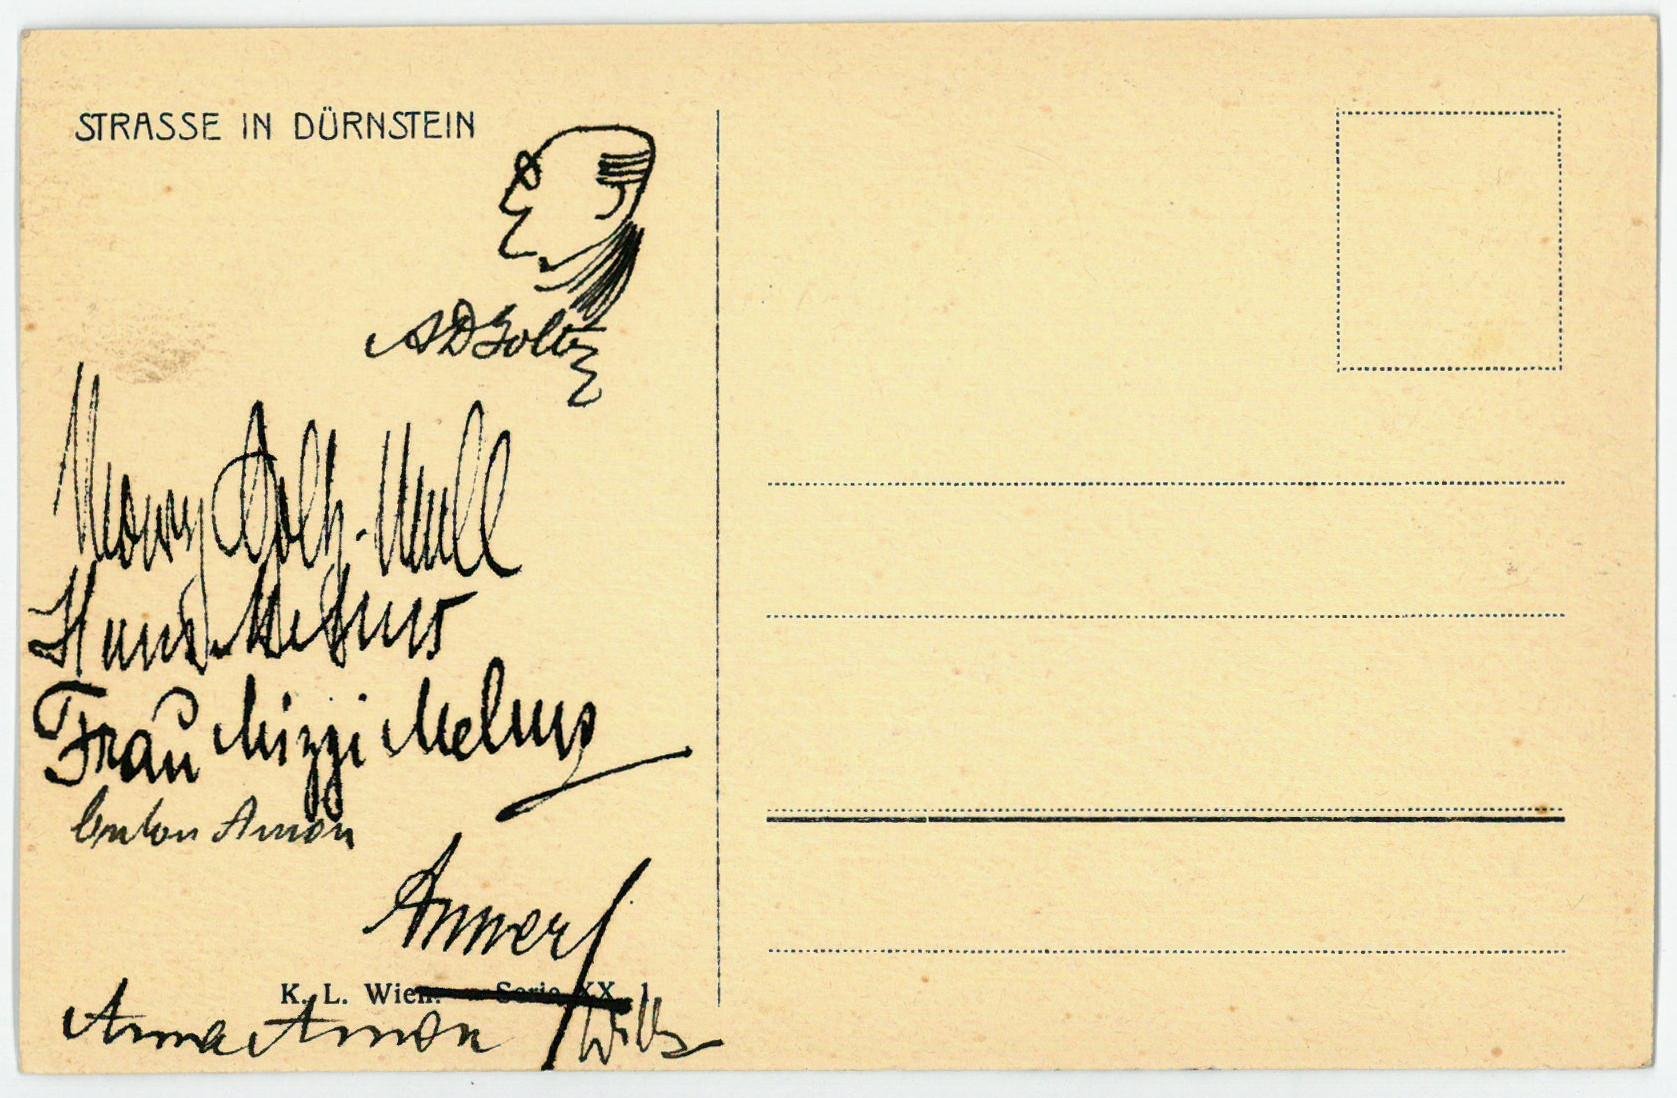 STRASSE IN DÜRNSTEIN
A D Goltz
Goltz-Mull
Hans
Frau Mizzi Melms
Anton Amon
K. L. Wien. Serie XX, 1
Anna Amon Willy